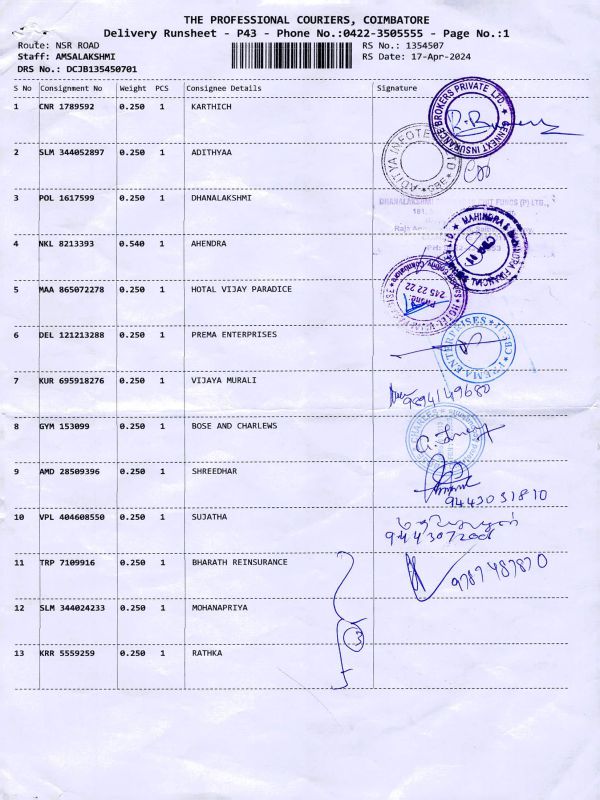 THE PROFESSIONAL COURIERS, COIMBATORE
Delivery Runsheet - P43 - Phone No.:0422-3505555 - Page No.:1
Route: NSR ROAD
RS No.: 1354507
Staff: AMSALAKSHMI
RS Date: 17-Apr-2024
DRS No.: DCJB135450701
S No Consignment No Weight PCS Consignee Details Signature
1 CNR 1789592 0.250 1 KARTHICH
GENNEXT INSURANCE BROKERS PRIVATE LTD.
2 SLM 344052897 0.250 1 ADITHYAA
ADITYA INFOTE
CBE
3 POL 1617599 0.250 1 DHANALAKSHMI
DHANALAKSHMI FUNCS (P) LTD.,
181,
4 NKL 8213393 0.540 1 AHENDRA
MAHINDRA & MAHINDRA FINANCIAL
5 MAA 865072278 1 HOTAL VIJAY PARADICE
HOTEL VIJAY PARADISE
Phone:
245 22 22
6 DEL 121213288 0.250 1 PREMA ENTERPRISES
PREMA ENTERPRISES
CBE-11
7 KUR 695918276 0.250 1 VIJAYA MURALI
9894149680
8 GYM 153099 0.250 1 BOSE AND CHARLEWS
9 AMD 28509396 0.250 1 SHREEDHAR
9443031810
10 VPL 404608550 0.250 1 SUJATHA
11 TRP 7109916 0.250 1 BHARATH REINSURANCE
9787487870
12 SLM 344024233 0.250 1 MOHANAPRIYA
13 KRR 5559259 0.250 1 RATHKA